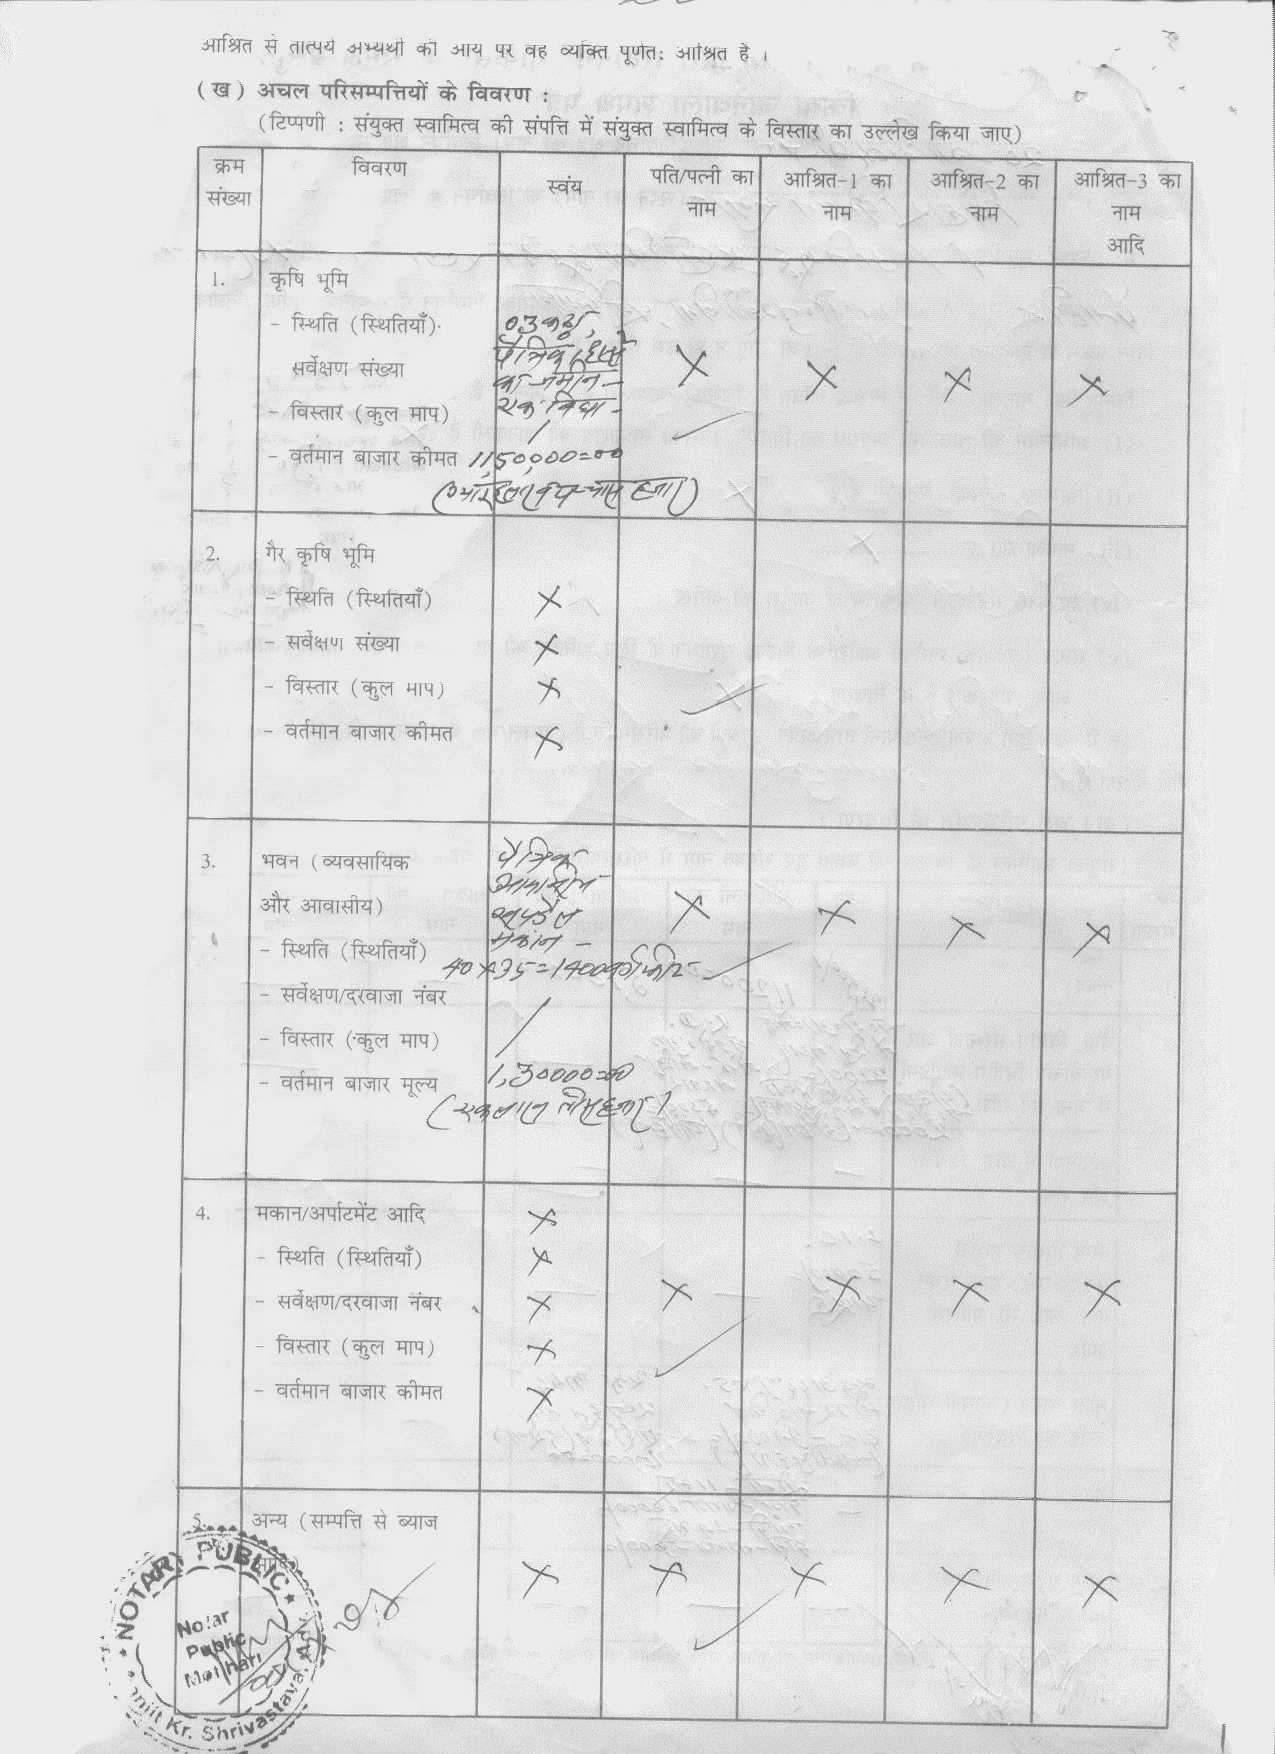 आश्रित से तात्पर्य अभ्यर्थी की आय पर वह व्यक्ति पूर्णत: आश्रित है ।
(ख) अचल परिसम्पत्तियों के विवरण :
(टिप्पणी : संयुक्त स्वामित्व की संपत्ति में संयुक्त स्वामित्व के विस्तार का उल्लेख किया जाए)
क्रम संख्या विवरण स्वंय पति/पत्नी का नाम आश्रित-1 का नाम आश्रित-2 का नाम आश्रित-3 का नाम आदि
1. कृषि भूमि
- स्थिति (स्थितियाँ)
सर्वेक्षण संख्या
- विस्तार (कुल माप)
- वर्तमान बाजार कीमत
पैत्रिक
X X X X
2. गैर कृषि भूमि
- स्थिति (स्थितियाँ) X
- सर्वेक्षण संख्या X
- विस्तार (कुल माप) X
- वर्तमान बाजार कीमत X
3. भवन (व्यवसायिक
और आवासीय)
- स्थिति (स्थितियाँ)
- सर्वेक्षण/दरवाजा नंबर
- विस्तार (कुल माप)
- वर्तमान बाजार मूल्य
पैत्रिक
खपड़ैल
मकान -
40 x 35 = 1400 वर्ग फीट
1,30000=00
(एक लाख तीस हजार)
X X X X
4. मकान/अर्पाटमेंट आदि X
- स्थिति (स्थितियाँ) X
- सर्वेक्षण/दरवाजा नंबर X X X X X
- विस्तार (कुल माप) X
- वर्तमान बाजार कीमत X
5. अन्य (सम्पत्ति से ब्याज
X X X X X
NOTARY PUBLIC
Notar
Public
Motihari
Kr. Shrivastava